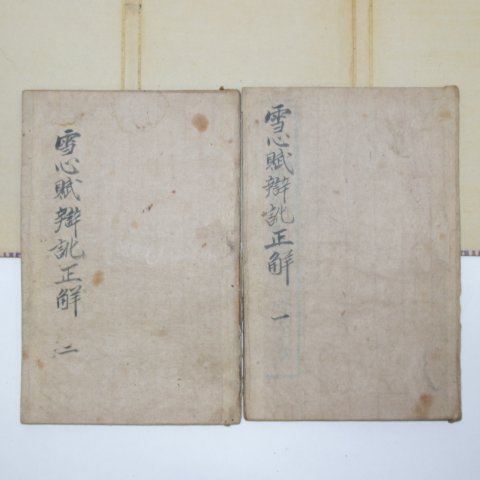 雪心賦辯訛正觧 一
雪心賦辯訛正觧 二